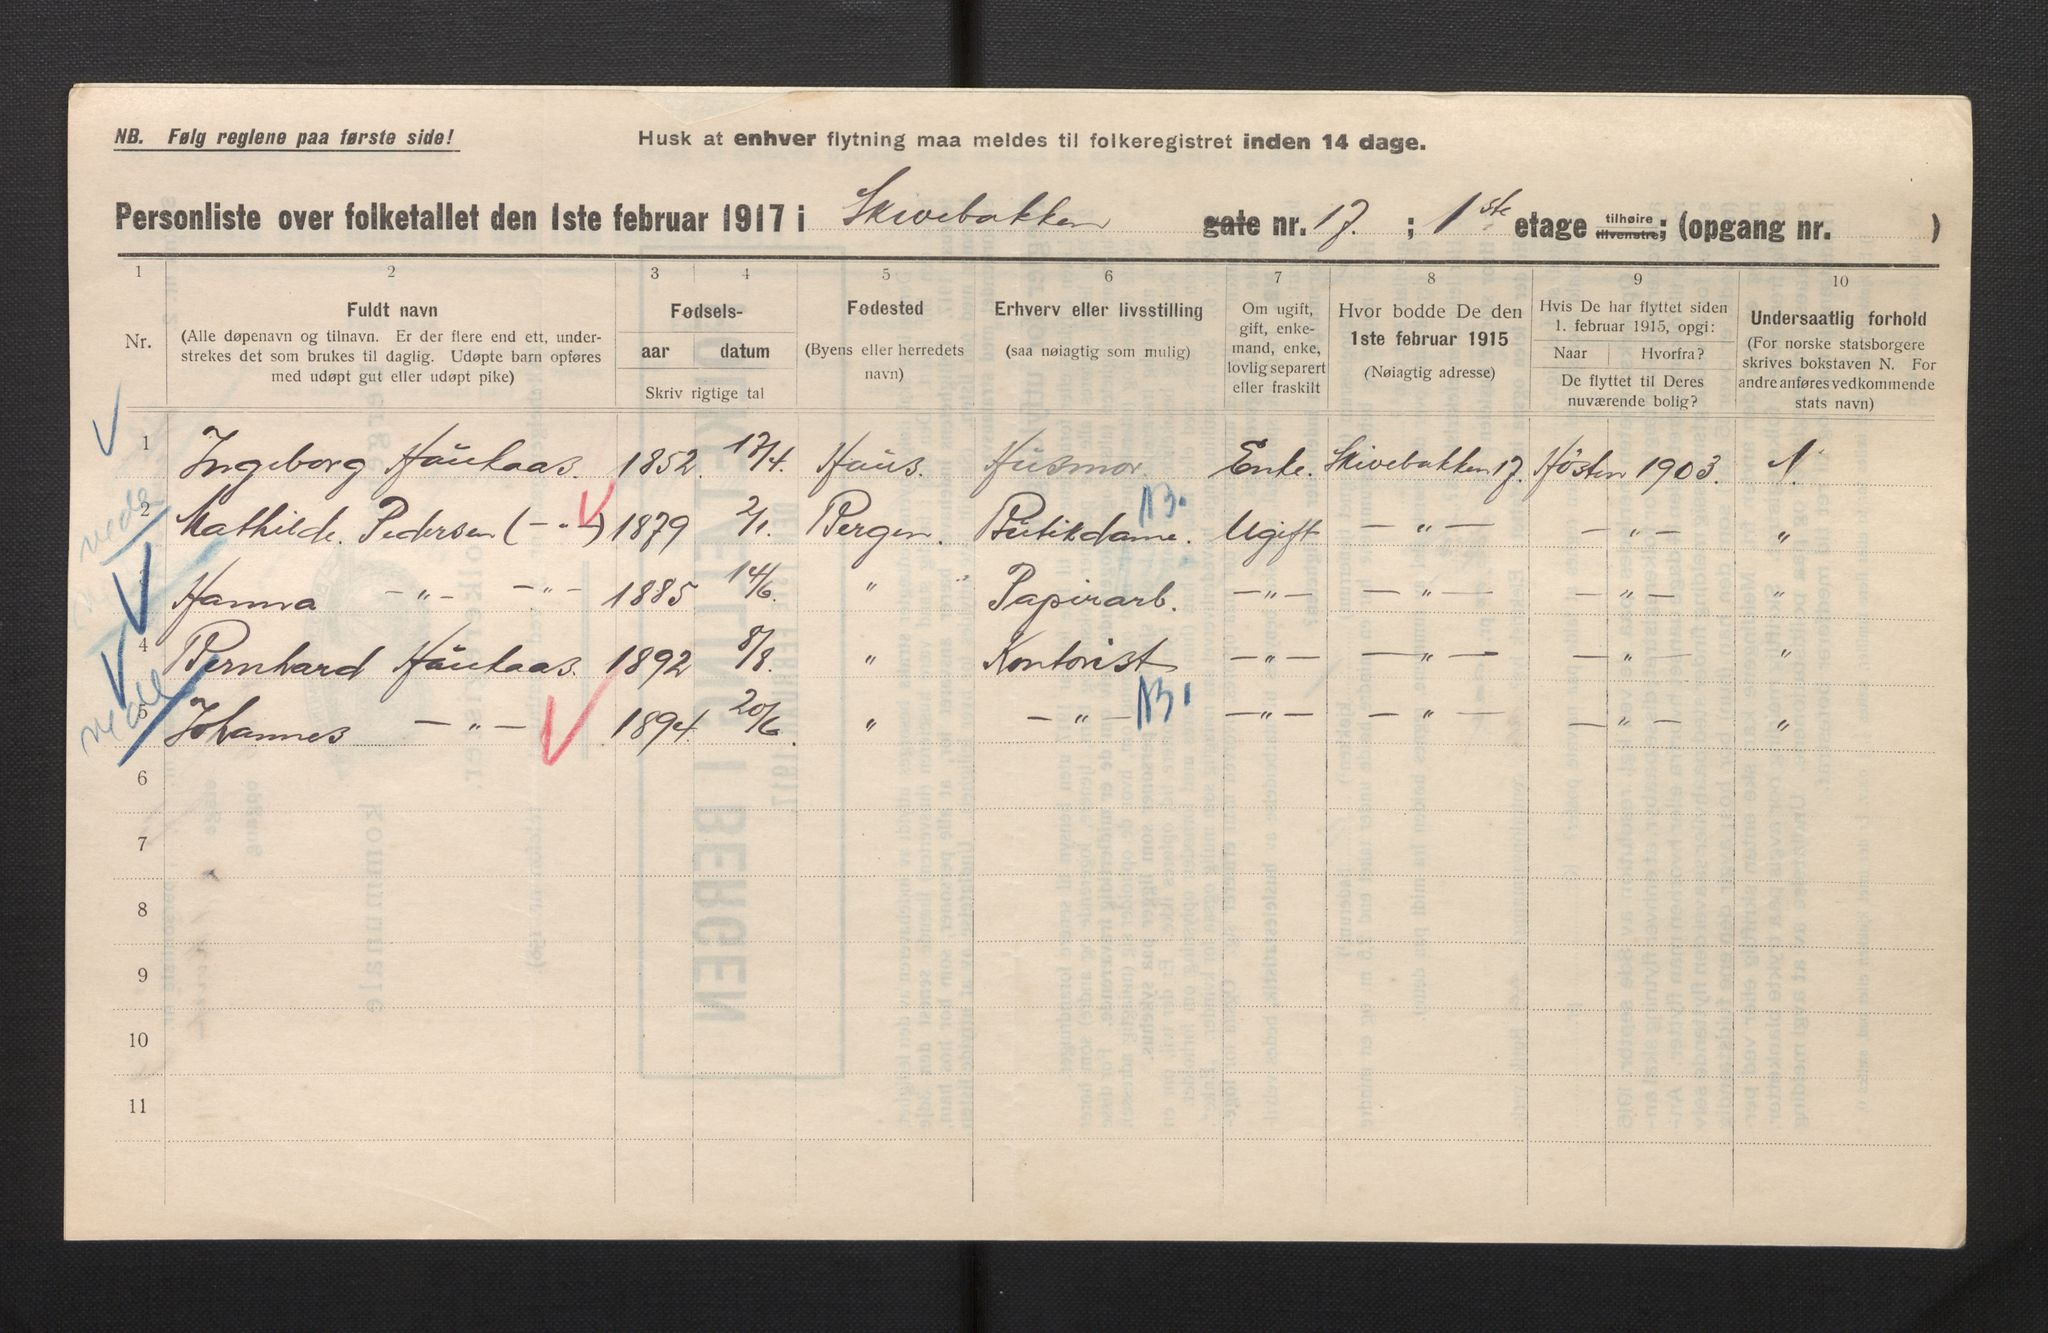 NB. Følg reglene paa første side!
Husk at enhver flytning maa meldes til folkeregistret inden 14 dage.
Personliste over folketallet den 1ste februar 1917 i Skivebakken gate nr. 17. ; 1ste etage tilhøire tilvenstre; (opgang nr. )
1 2 3 4 5 6 7 8 9 10
Nr. Fuldt navn (Alle døpenavn og tilnavn. Er der flere end ett, under-
strekes det som brukes til daglig. Udøpte barn opføres
med udøpt gut eller udøpt pike)
Fødsels-
aar datum
Skriv rigtige tal
Fødested
(Byens eller herredets
navn)
Erhverv eller livsstilling
(saa nøiagtig som mulig)
Om ugift,
gift, enke-
mand, enke,
lovlig separert
eller fraskilt
Hvor bodde De den
1ste februar 1915
(Nøiagtig adresse)
Hvis De har flyttet siden
1. februar 1915, opgi:
Naar Hvorfra?
De flyttet til Deres
nuværende bolig?
Undersaatlig forhold
(For norske statsborgere
skrives bokstaven N. For
andre anføres vedkommende
stats navn)
1 Ingeborg Haukaas. 1852. 17/4. Haus. Husmor. Enke. Skivebakken 17. Høsten 1903. N.
2 Mathilde Pedersen (-"-) 1879 2/1. Bergen. Butikdame. Ugift -"- -"- "
Hanna -"- -"- 1885 14/6. " Papirarb. -"- -"- -"- "
4 Bernhard Haukaas. 1892 8/8. " Kontorist -"- -"- -"- "
5 Johannes -"- 1894. 20/6. " -"- -"- -"- -"- "
6
7
8
9
10
11